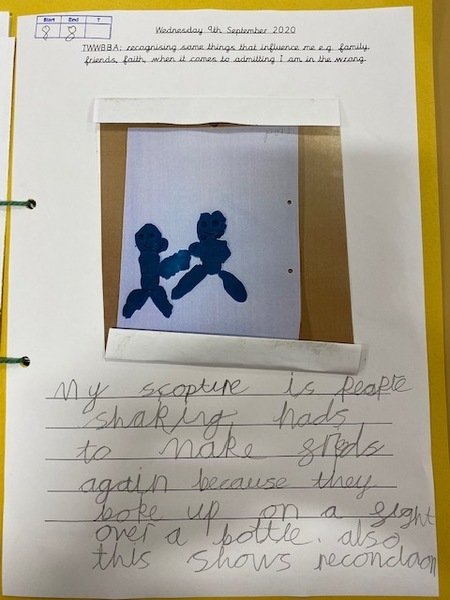 Start End T
8 8
Wednesday 9th September 2020
TWWBBA: recognising some things that influence me e.g. family
friends, faith, when it comes to admitting I am in the wrong.
My scopture is people
shaking hads
to make
again because they
boke up on a fight
over a bottle. also
this shows